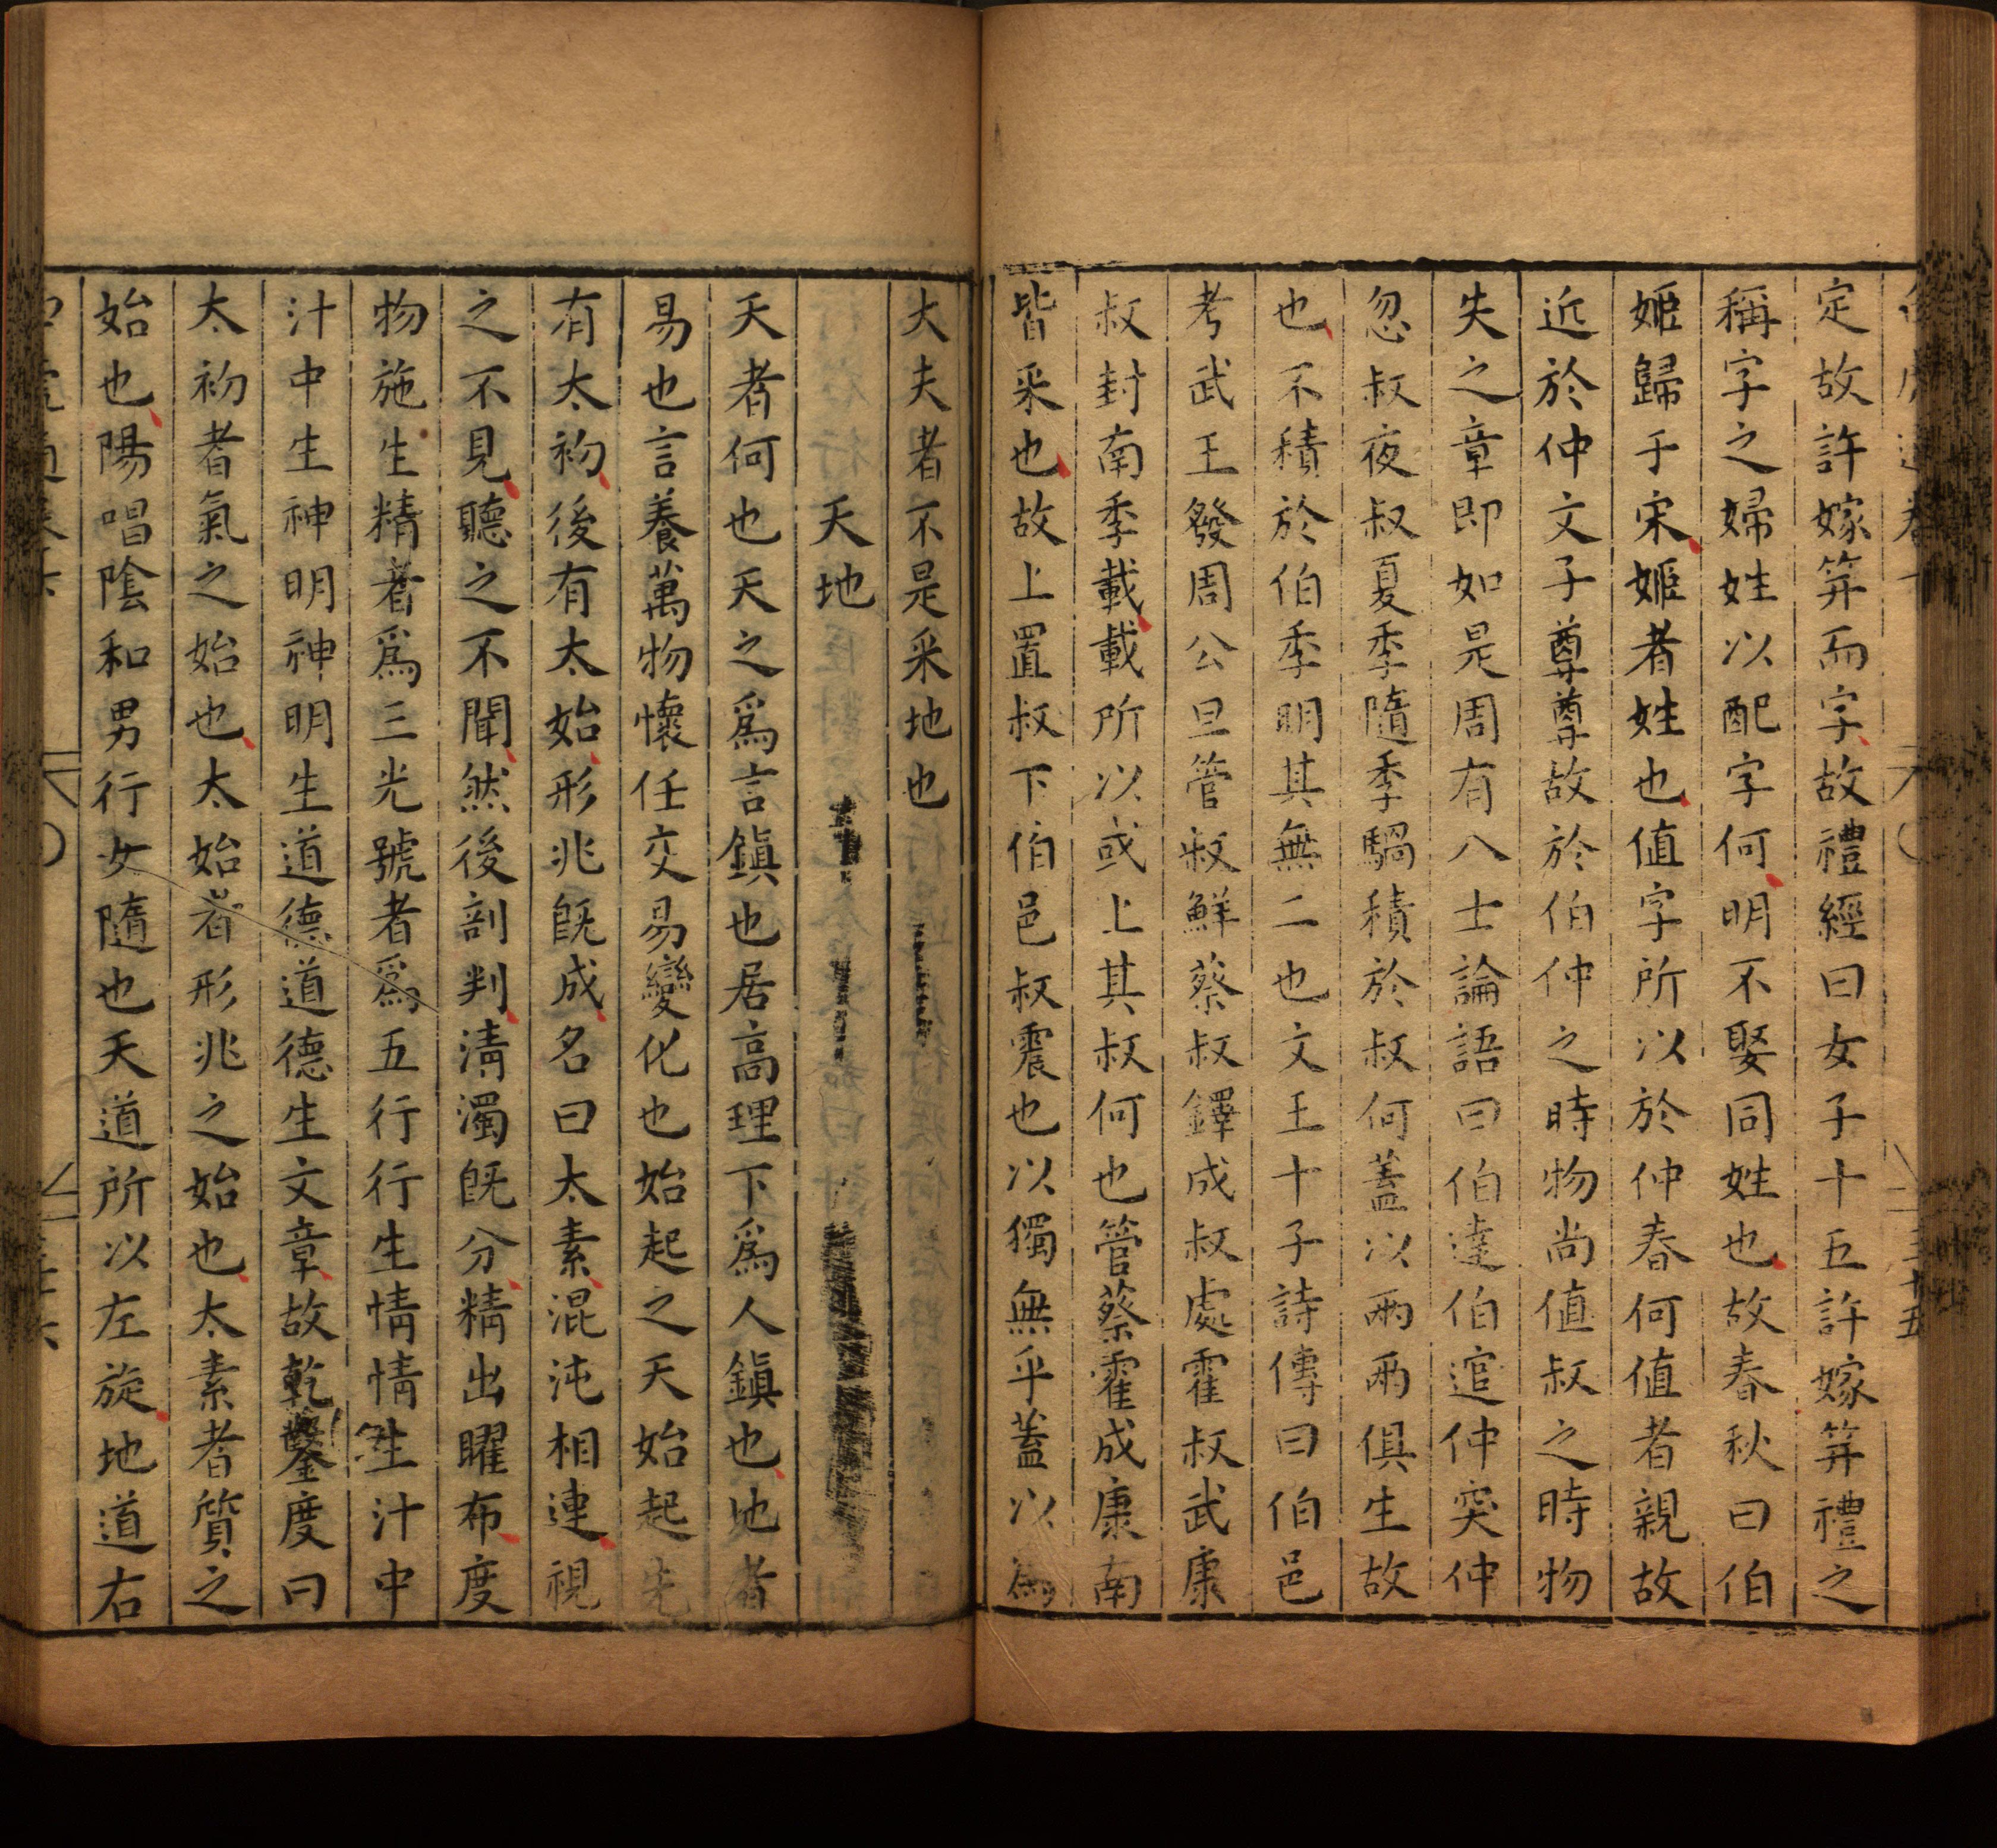 定故許嫁笄而字故禮經曰女子十五許嫁笄禮之
稱字之婦姓以配字何明不娶同姓也故春秋曰伯
姬歸于宋姬者姓也值字所以於仲春何值者親故
近於仲文子尊尊故於伯仲之時物尚值叔之時物
失之章即如是周有八士論語曰伯達伯逭仲突仲
忽叔夜叔夏季隨季騧積於叔何蓋以兩兩俱生故
也不積於伯季明其無二也文王十子詩傳曰伯邑
考武王發周公旦管叔鮮蔡叔鐸成叔處霍叔武康
叔封南季載載所以或上其叔何也管蔡霍成康南
皆采也故上置叔下伯邑叔震也以獨無乎蓋以爲
大夫者不是采地也
天地
天者何也天之爲言鎮也居高理下爲人鎮也地者
易也言養萬物懷任交易變化也始起之天始起先
有太初後有太始形兆旣成名曰太素混沌相連視
之不見聽之不聞然後剖判清濁旣分精出曜布度
物施生精者爲三光號者爲五行行生情情生汁中
汁中生神明神明生道德道德生文章故乾鑿度曰
太初者氣之始也太始者形兆之始也太素者質之
始也陽唱陰和男行女隨也天道所以左旋地道右